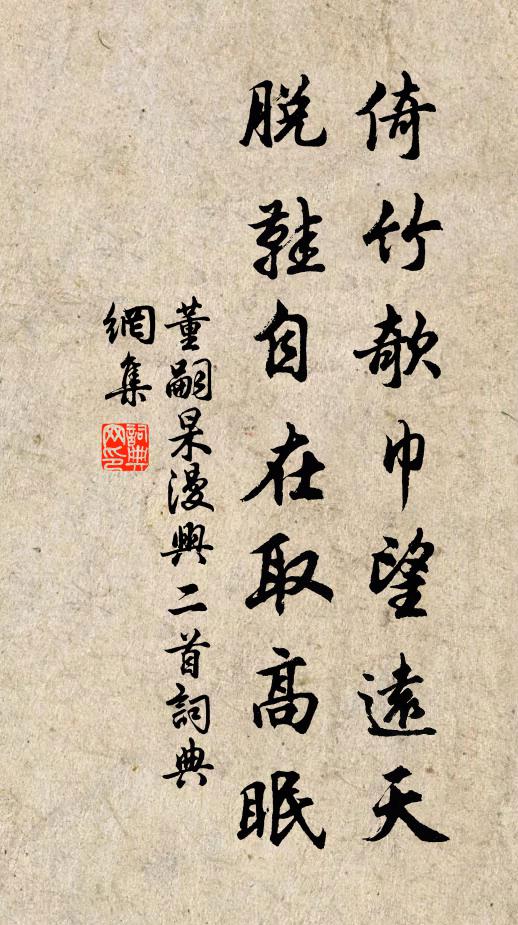 倚竹欹巾望遠天
脫鞋自在取高眠
董嗣杲漫興二首詞典
網集
詞典網印